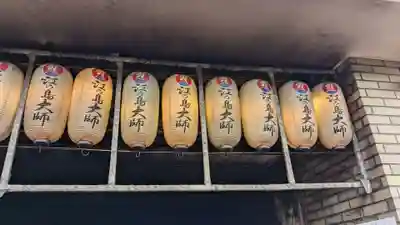 江の島大師
江の島大師
江の島大師
江の島大師
江の島大師
江の島大師
江の島大師
江の島大師